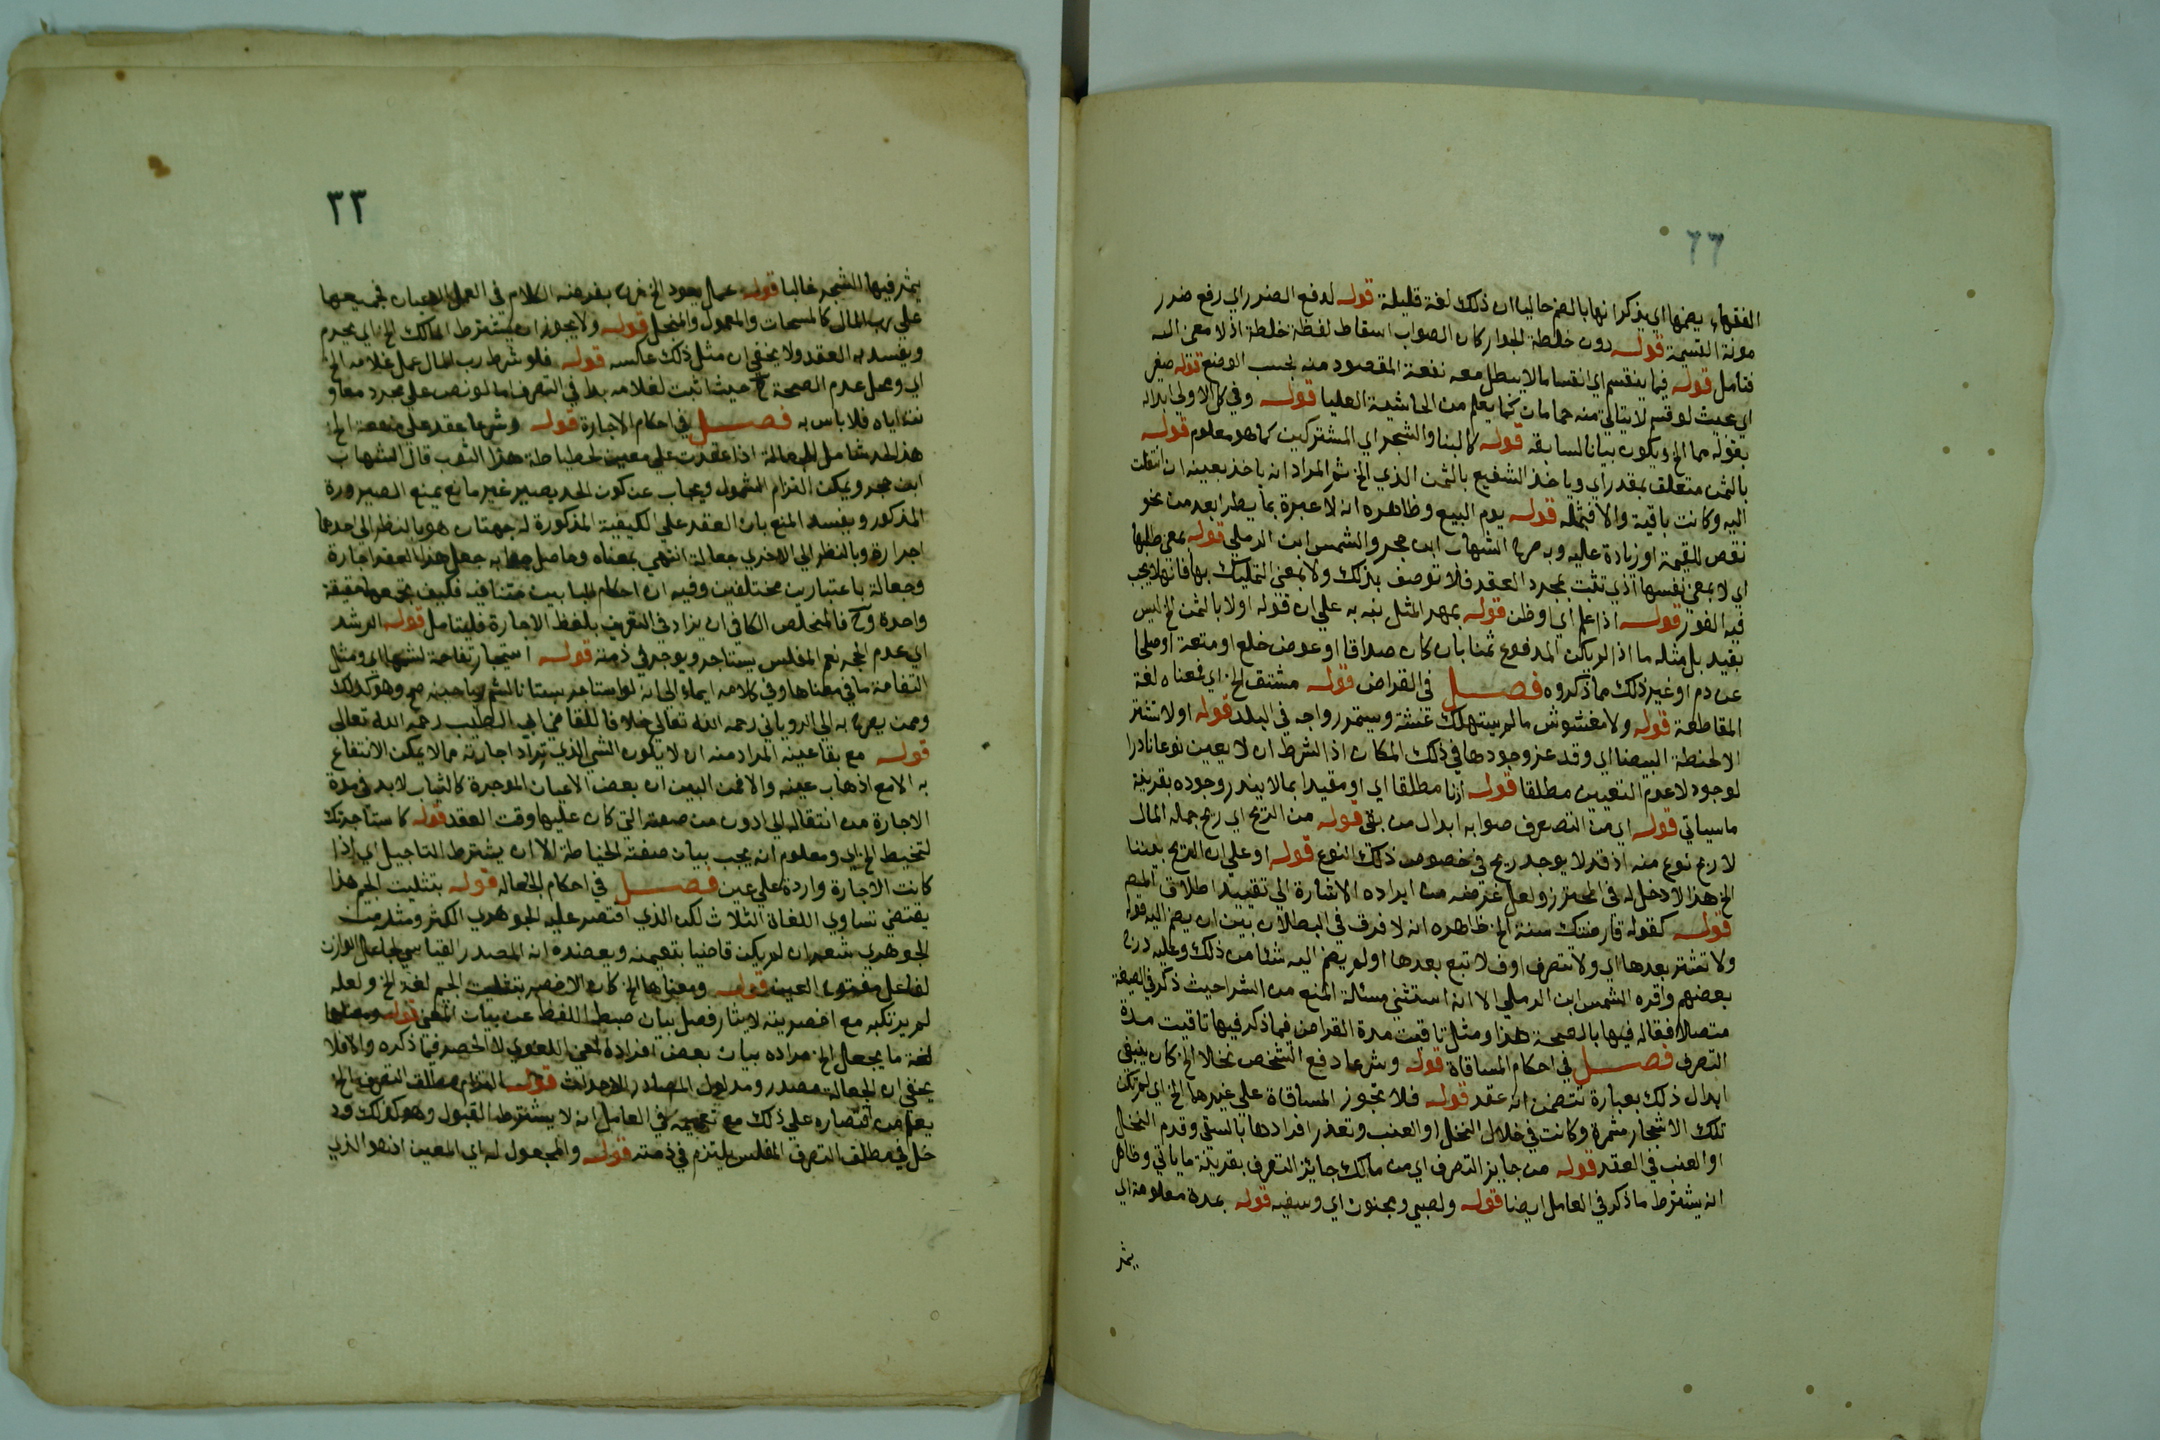 الفقهاء يضمها اي يذكر انها بالضم حاليا ان ذلك لغة قليلة قوله لدفع الضرر اي رفع ضرر
مونة القسمة قوله دون خلطة الجوار كان الصواب اسقاط لفظة خلطة اذ لا معنى اليه
فتامل قوله فيما ينقسم اي انقساما لا يبطل معه نفعة المقصود منه بحسب الوضع قوله صغير
اي بحيث لو قسم لا يتاتى منه حمامات كما يعلم من الحاشية العليا قوله وفي كل الاولى ابداله
بقوله مما الخ ويكون بيانا لسابقه قوله كالبنا والشجر اي المشتركين كما هو معلوم قوله
بالثمن متعلق بمقدر اي وياخذ الشفيع بالثمن الذي الخ ثم المراد انه ياخذ بعينه ان انتقلت
اليه وكانت باقية والا فبمثله قوله يوم البيع وظاهره انه لا عبرة بما يطرا بعد من نحو
نقص القيمة او زيادة عليه وبه صرح الشهاب ابن حجر والشمس ابن الرملي قوله بمعنى طلبها
اي لا بمعنى نفسها اذ هي تثبت بمجرد العقد فلا توصف بذلك ولا بمعنى التمليك بها فانه لا يجب
فيه الفور قوله اذا علم اي او ظن قوله بمهر المثل نبه به على ان قوله اولا بالثمن الخ ليس
بقيد بل مثله ما اذا لم يكن المدفوع ثمنا بان كان صداقا او عوض خلع او متعة او صلحا
عن دم او غير ذلك مما ذكروه فصل في القراض قوله مشتق الخ اي فمعناه لغة
المقاطعة قوله ولا مغشوش ما لم يستهلك غشه ويستمر رواجه في البلد قوله او لا تشتر
الا الحنطة البيضا اي وقد عز وجودها في ذلك المكان اذ الشرط ان لا يعين نوعا نادرا
لوجود لا عدم التعيين مطلقا قوله اذنا مطلقا اي او مقيدا بما لا يندر وجوده بقرينة
ما سياتي قوله اي من التصرف صوابه ابدال من بفي قوله من الربح اي ربح جملة المال
لا ربح نوع منه اذ قد لا يوجد ربح في خصوص ذلك النوع قوله او على ان الربح بيننا
الخ هذا لا دخل له في المحترز ولعل غرضه من ايراده الاشارة الى تقييد اطلاق المص
قوله كقوله قارضتك سنة الخ ظاهره انه لا فرق في البطلان بين ان يضم اليه قوله
ولا تشتر بعدها اي ولا تتصرف او فلا تبع بعدها او لم يضم اليه شئا من ذلك وعليه درج
بعضهم واقره الشمس ابن الرملي الا انه استثنى مسئلة المنع من الشرا حيث ذكر في الصيغة
متصلا فقاله فيها بالصحة هذا ومثل تاقيت مدة القراض فيما ذكر فيها تاقيت مدة
التصرف فصل في احكام المساقاة قوله وشرعا دفع الشخص نخلا الخ كان ينبغي
ابدال ذلك بعبارة تتضمن انه عقد قوله فلا تجوز المساقاة على غيرها الخ اي لم تكن
تلك الاشجار مثمرة وكانت في خلال النخل او العنب وتعذر افرادها بالسقي وقدم النخل
او العنب في العقد قوله من جايز التصرف اي من مالك جايز التصرف بقرينة ما ياتي وظاهر
انه يشترط ما ذكر في العامل ايضا قوله ولصبي ومجنون اي وسفيه قوله بمدة معلومة اي
يثمر
٣٣
يثمر فيها الشجر غالبا قوله عمل يعود الخ بفرضه الكلام في العمل فجميعها
على رب المال كالمسحات والمعول والمنجل قوله ولا يجوز ان يشترط المالك الخ اي يحرم
ويفسد به العقد ولا يخفى ان مثل ذلك عاكسه قوله فلو شرط رب المال عمل غلامه الخ
اي ومحل عدم الصحة ح حيث اثبت لغلامه يدا في التصرف اما لو نص على مجرد معاو
نته اياه فلا باس به فصل في احكام الاجارة قوله وشرعا عقد على منفعة الخ
هذا الحد شامل للجعالة اذا عقدت على معين كخياطة هذا الثوب قال الشهاب
ابن حجر ويمكن التزام الشمول ويجاب عن كون الحد يصير غير مانع بمنع الصيرورة
المذكور ويفسد المنع بان العقد على الكيفية المذكورة له جهتان هو بالنظر الى احدهما
اجارة وبالنظر الى الاخرى جعالة انتهى بمعناه وحاصل جوابه جعل هذا العقد اجارة
وجعالة باعتبارين مختلفين وفيه ان احكام البابين متنافيه فكيف تجمعهما حقيقة
واحدة وح فالمتخلص الكافي ان يزاد في التعريف بلفظ الاجارة فليتامل قوله الرشد
اي عدم الحجر نعم المفلس يستاجر ويوجر في ذمته قوله استيجار تفاحة لشمها اي ومثل
التفاحة ما في معناها وفي كلامه ايماء الى انه لو استاجر بستانا لشم رياحينه صح وهو كذلك
وممن يصرح به الروياني رحمه الله تعالى خلافا للقاضي ابي الطيب رحمه الله تعالى
قوله مع بقا عينه المراد منه ان لا يكون الشي الذي تراد اجارته مما لا يمكن الانتفاع
به الا مع اذهاب عينه والا فمن البين ان بعض الاعيان الموجرة كالثياب لا بد في مدة
الاجارة من انتقاله الى ادون من صفته التي كان عليها وقت العقد قوله كاستاجرتك
لتخيط الخ اي ومعلوم انه يجب بيان صفته الخياطة الا ان يشترط التاجيل اي اذا
كانت الاجارة واردة على عين فصل في احكام الجعالة قوله بتثليث الجيم هذا
يقتضي تساوي اللغاة الثلاث لكن الذي اقتصر عليه الجوهري الكسر ومثله من
الجوهري شعر ان لم يكن قاضيا بتعيينه ويعضده انه المصدر القياسي لجاعل الموازن
لفاعل مفتوح العين قوله ومعناها الخ كان الاخصر بتثليث الجيم لغة الخ ولعله
لم يرتكبه مع اخصريته لايثار فصل بيان ضبط اللفظ عن بيان المعنى قوله ومعناها
لغة ما يجعل الخ مراده بيان بعض افراد المعنى اللغوي لا الحصر فيما ذكره والا فلا
يخفى ان الجعالة مصدر ومدلول المصادر الاحداث قوله التزام مطلق التصرف الخ
يعلم من اقتصاره على ذلك مع تعميمه في العامل انه لا يشترط القبول وهو كذلك ود
خل في مطلق التصرف المفلس يلتزم في ذمته قوله والمجعول له اي المعين اذ هو الذي